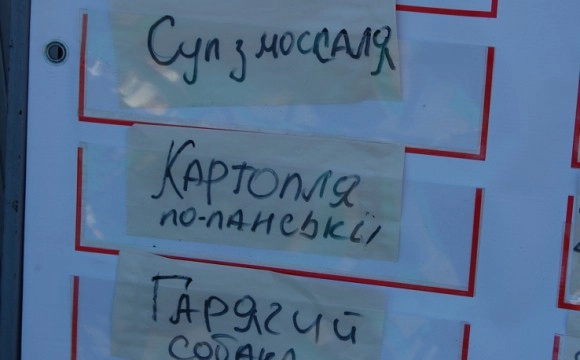 Суп з моссаля
Картопля
по-панськії
Гарячий
собака